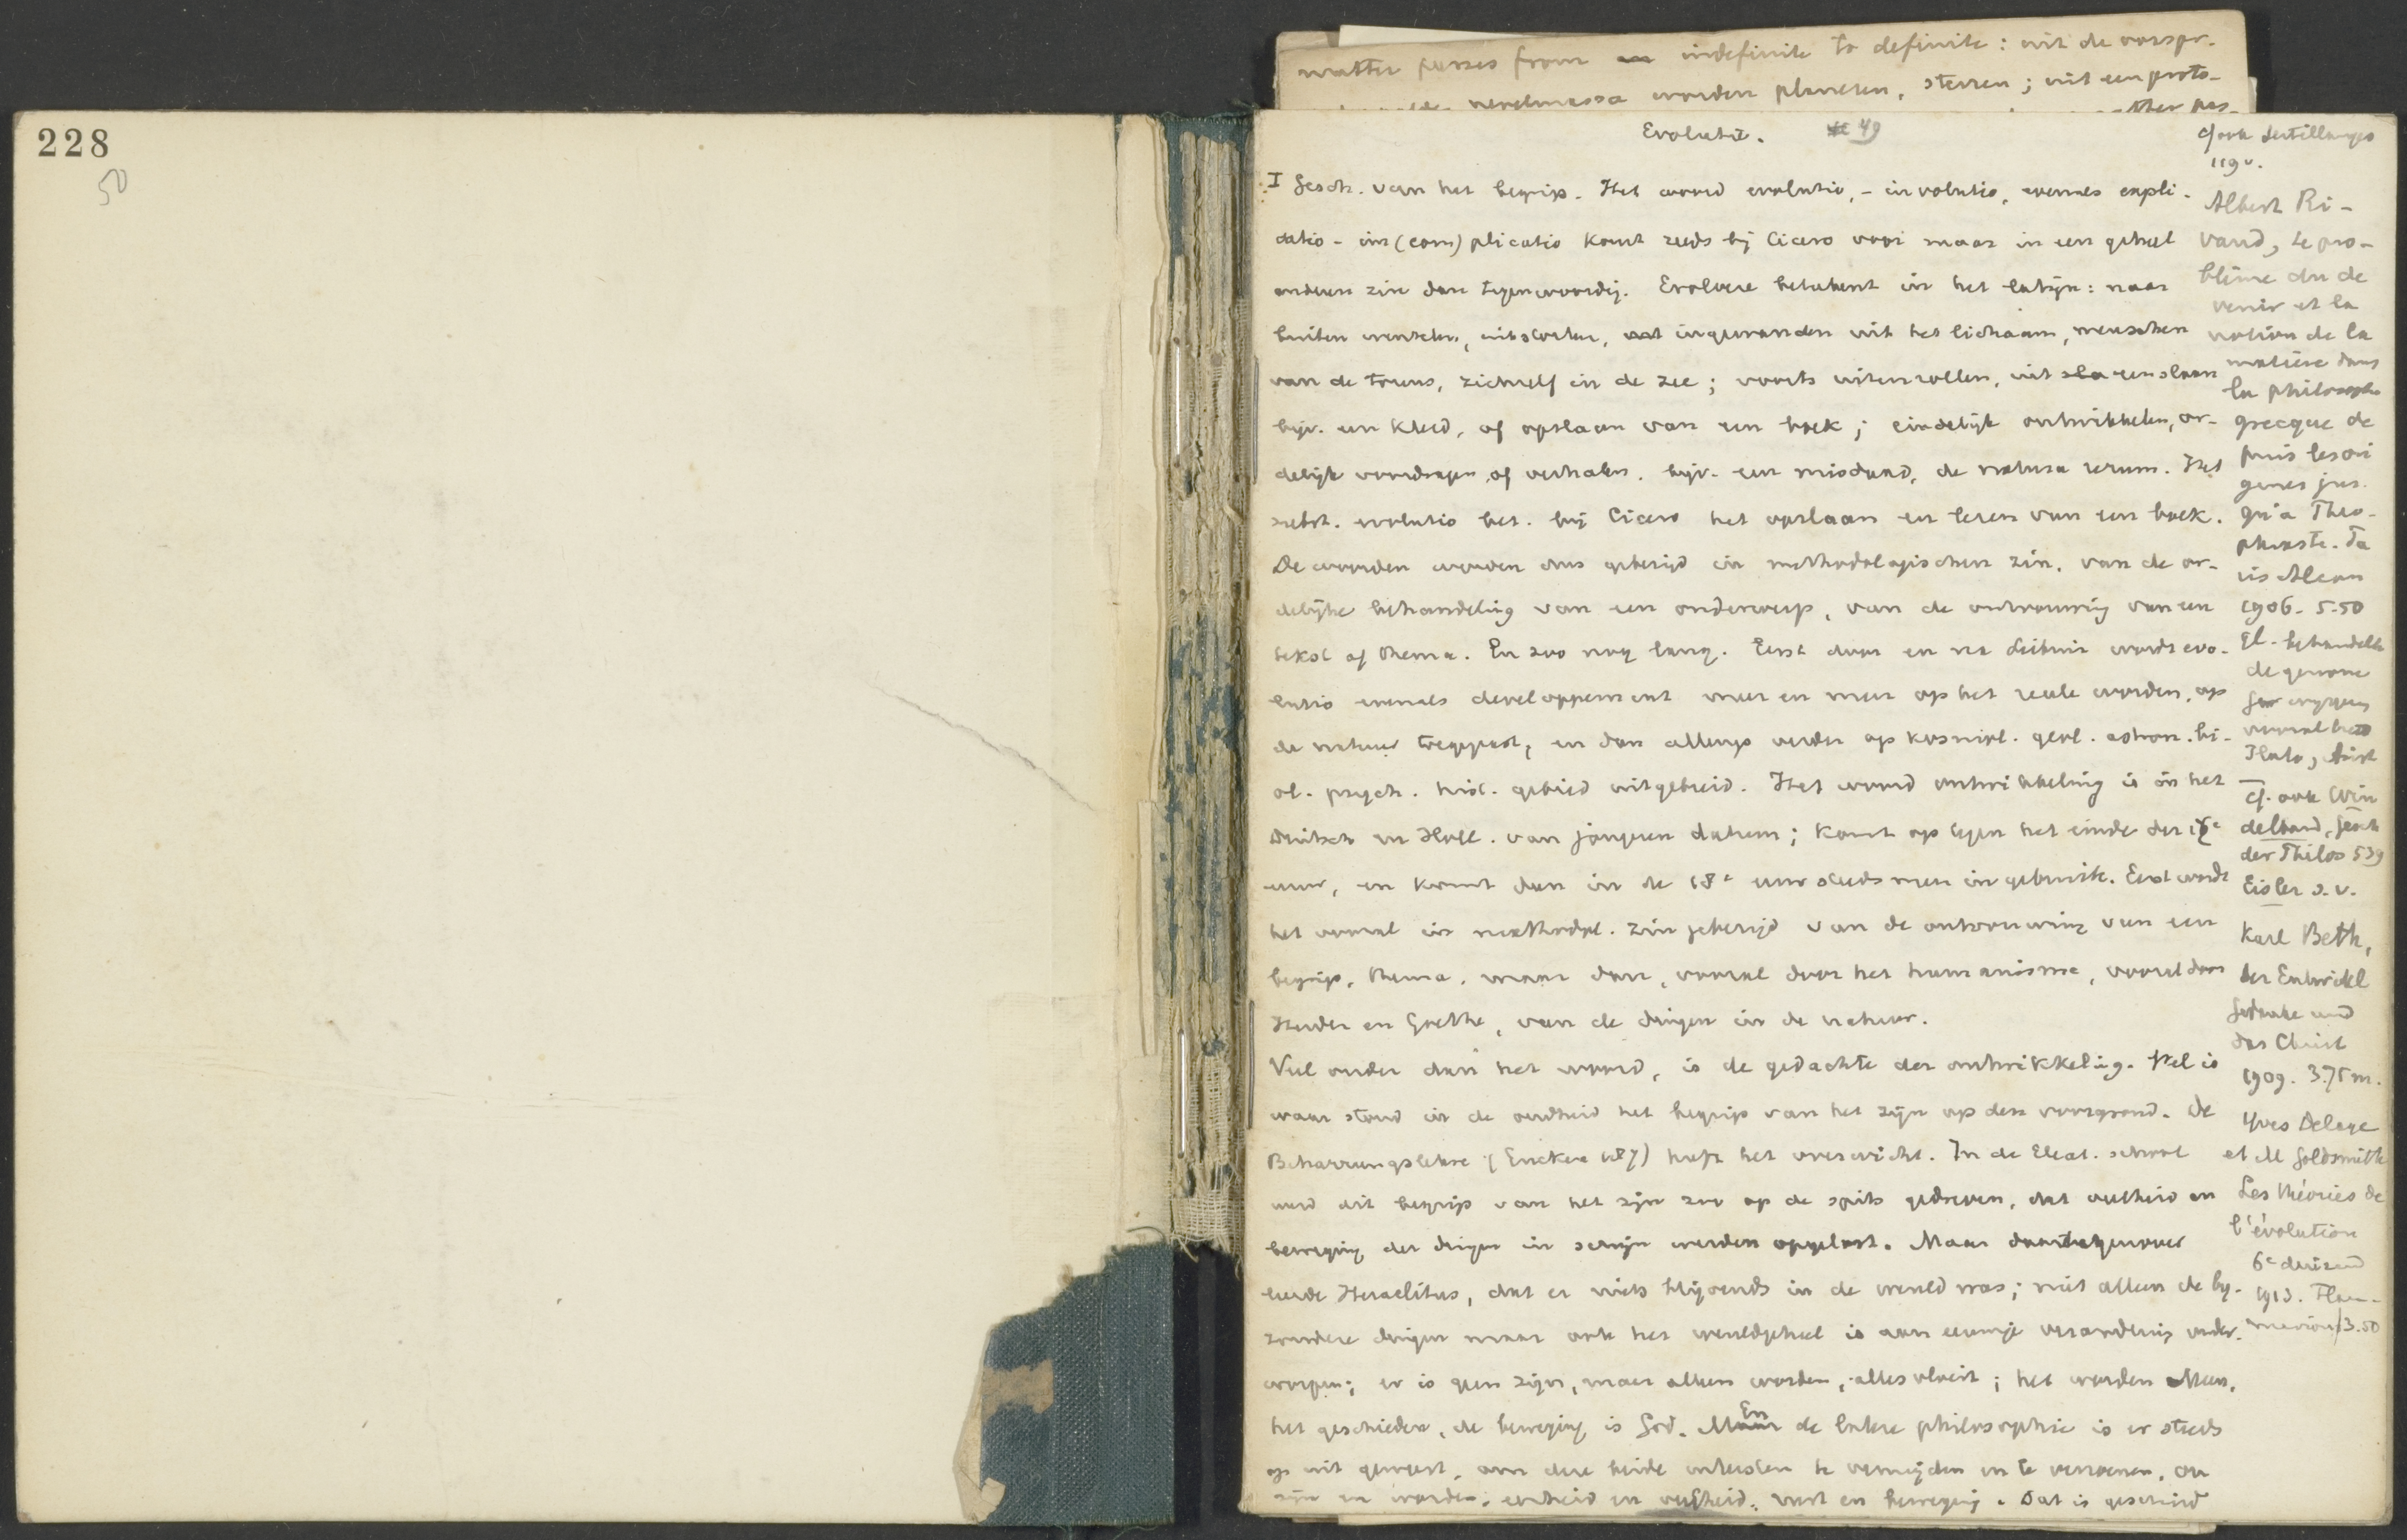 228
50
matter passes from indefinite to definite: uit de oorspr.
nevelmassa worden planeten, sterren; uit een proto-
Evolutie. 49
I Gesch. van het begrip. Het woord evolutio, - involutio, evenals expli-
catio - im (com) plicatio komt reeds bij Cicero voor maar in een geheel
anderen zin dan tegenwoordig. Evolvere beteekent in het latijn: naar
buiten wentelen, uitstorten, ingewanden uit het lichaam, menschen
van de troens, zichzelf in de zee; voorts uiteenrollen, uit sla eenslaan
bijv. een kleed, of opslaan van een boek; eindelijk ontwikkelen, or-
delijk voordragen of verhalen. bijv. een misdaad, de natura rerum. Het
subst. evolutio bet. bij Cicero het opslaan en lezen van een boek.
De woorden werden dus gebezigd in methodologischen zin, van de or-
delijke behandeling van een onderwerp, van de ontvouwing van een
tekst of thema. En zoo nog lang. Eerst door en na Leibniz wordt evo-
lutio evenals developpement meer en meer op het reële worden, op
de natuur toegepast, en dan allengs verder op kosmol. geol. astron. bi-
ol. psych. hist. gebied uitgebreid. Het woord ontwikkeling is in het
Duitsch en Holl. van jongeren datum; komt op tegen het einde der 17e
eeuw, en komt dan in de 18e eeuw steeds meer in gebruik. Eerst wordt
het vooral in methodol. zin gebezigd van de ontvouwing van een
begrip, thema, maar dan, vooral door het humanisme, vooral door
Herder en Goethe, van de dingen in de natuur.
Veel ouder dan het woord, is de gedachte der ontwikkeling. Wel is
waar stond in de oudheid het begrip van het zijn op den voorgrond. De
Beharrungslehre (Eucken 187) heeft het overwicht. In de Eleat. school
werd dit begrip van het zijn zoo op de spits gedreven, dat veelheid en
beweging der dingen in schijn werden opgelost. Maar daartegenover
leerde Heraclitus, dat er niets blijvends in de wereld was; niet alleen de bij-
zondere dingen maar ook het wereldgeheel is aan eeuwige verandering onder-
worpen; er is geen zijn, maar alleen worden, alles vloeit; het worden alleen,
het geschieden, de beweging is God. En de latere philosophie is er steeds
op uit geweest, om deze beide uitersten te vermijden en te verzoenen, om
zijn en worden, eenheid en veelheid, rust en beweging. Dat is geschied
cf ook Sertillanges
119v.
Albert Ri-
vaud, Le pro-
blème du de
venir et la
notion de la
matière dans
la philosophie
grecque de
puis les ori
gines jus-
qu'a Theo-
phraste. Pa
ris Alcan
1906. 5.50
Plato, Arist
cf. ook Win
delband, Gesch
der Philos 539
Eisler s.v.
Karl Beth,
der Entwickl
Gedanke und
das Christ
1909. 3.75 m.
Yves Delage
et M Goldsmith
Les théories de
l'évolution
6e duizend
1913. Flam-
marion f3.50